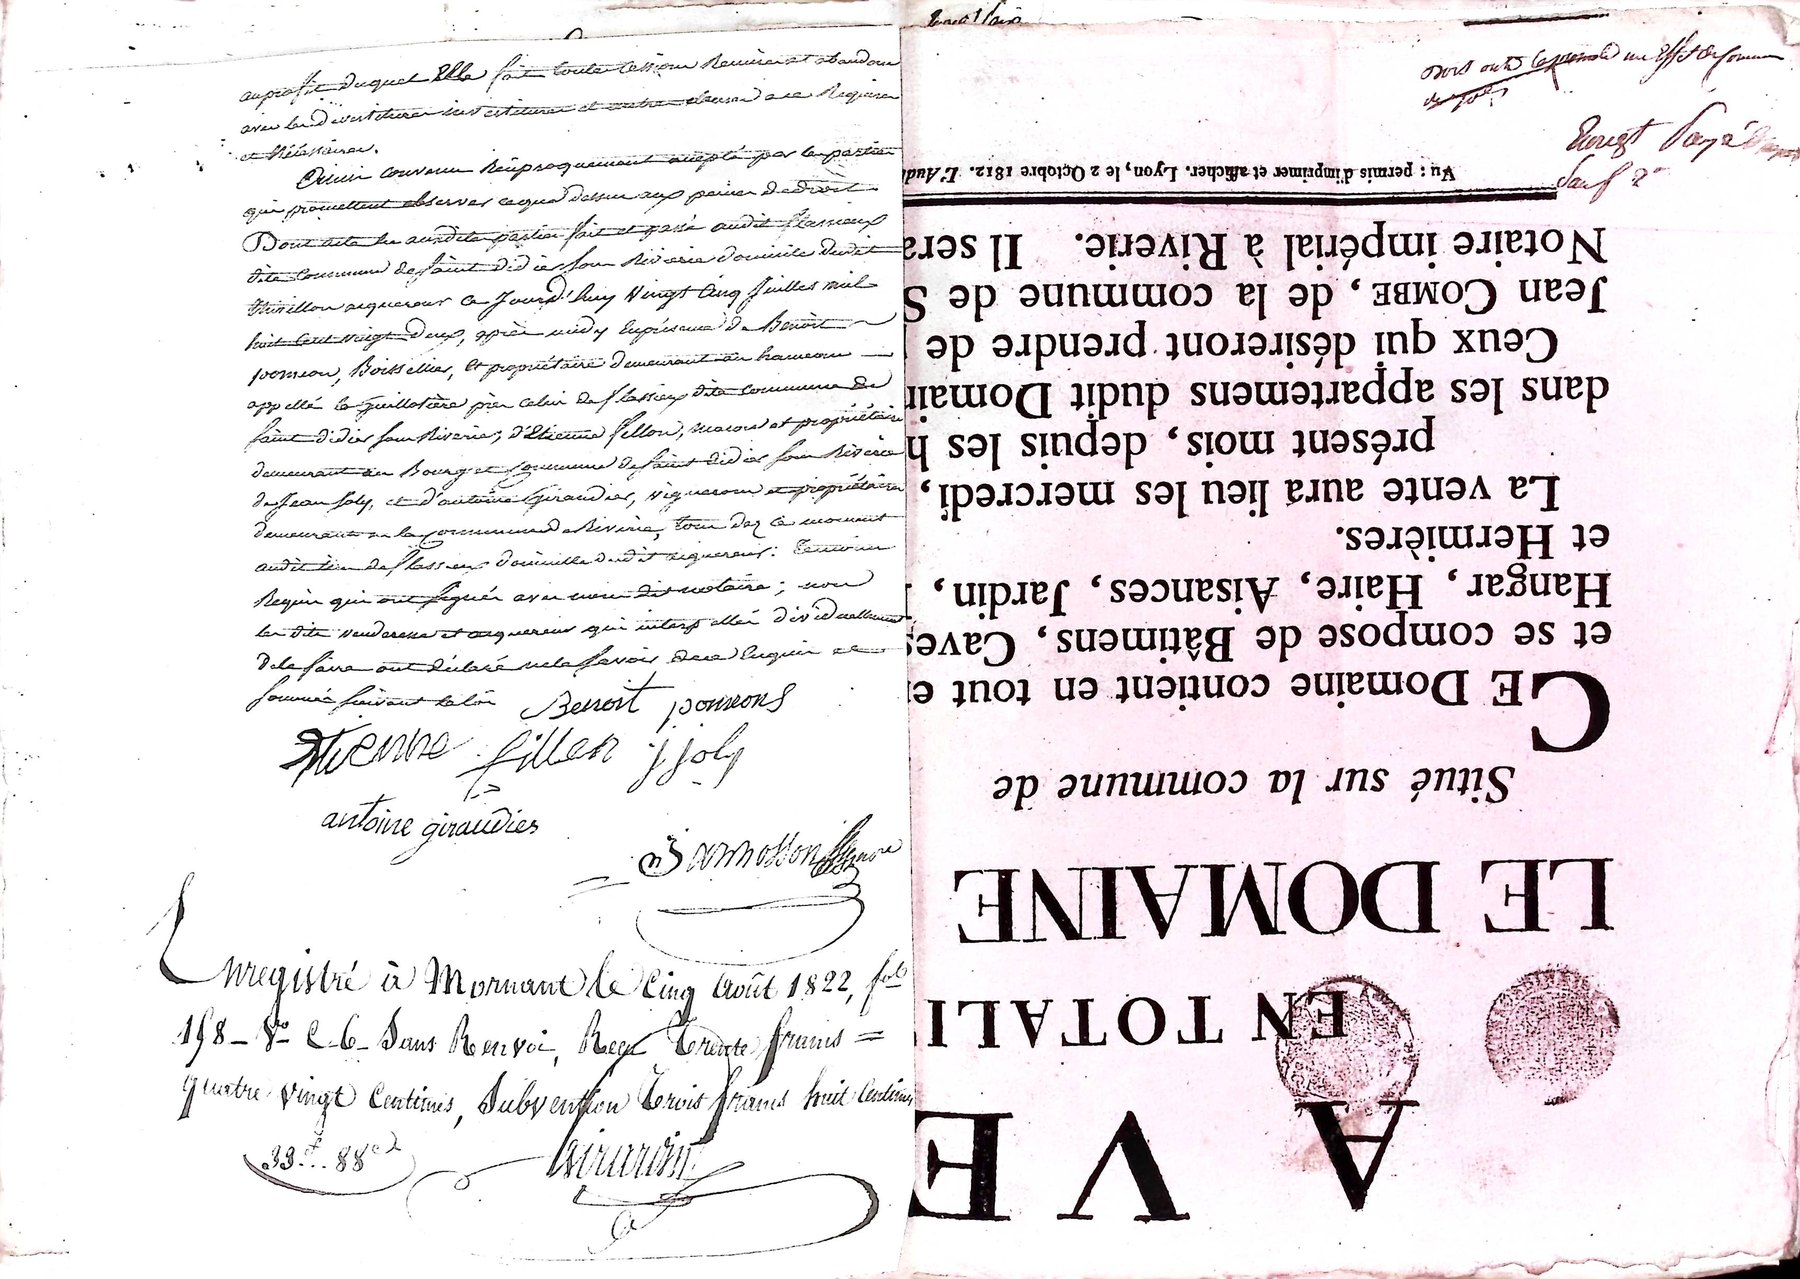 au profit duquel Elle fait toute cession Remise et abandon
avec les devestitures investitures et autres clauses a ce Requises
et Nécessaires.
Ainsi convenu Réciproquement accepté par les parties
qui promettent observer ce que dessus aux peines de droit
Dont acte lu auxdites parties fait et passé audit flassieux
dite commune de Saint didier Sous Riverie domicile dudit
thivillon acquereur ce Jourd'huy Vingt Cinq Juillet mil
huit Cent vingt deux, après midy En présence de Benoit
ponson, Boissellier, Et propriétaire demeurant au hameau
appellé la Guillotière près celui de flassieux dite commune de
Saint didier sous Riverie, d'Etienne fillon, macon et propriétaire
demeurant au Bourg et Commune de Saint didier Sous Riverie
de Jean Joly, et d'antoine Giraudier, vignerons et propriétaires
demeurant en la Commune de Riverie, tous dez ce moment
audit lieu de flassieux domicille dudit acquereur: Temoins
Requis qui ont signés avec nous dit notaire; non
les dits venderesse et acquereur qui interpellés dividuellement
de le faire ont déclaré ne le Savoir de ce Enquis et
Sommés suivant la loi
Benoit ponsons
Etienne fillon j joly
antoine giraudier
Enregistré à Mornant le Cinq Août 1822, fol
158 - Vo C. 6 - Sans Renvoi, Reçu Trente francs =
quatre vingt Centimes, Subvention Trois francs huit Centimes
33f.. 88c
Girardin
Vu : permis d'imprimer et afficher. Lyon, le 2 Octobre 1812. L'Aud
Notaire impérial à Riverie. Il sera
Jean COMBE, de la commune de S
Ceux qui désireront prendre de
dans les appartemens dudit Domain
présent mois, depuis les h
La vente aura lieu les mercredi,
et Hermières.
Hangar, Haire, Aisances, Jardin,
et se compose de Bâtimens, Caves
CE Domaine contient en tout e
Situé sur la commune de
LE DOMAINE
EN TOTALI
A VE